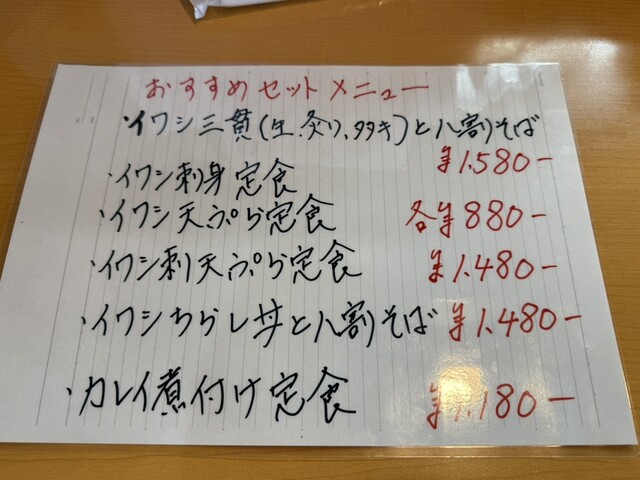 おすすめセットメニュー
・イワシ三貫(生.炙り.タタキ)と八割そば
¥1.580-
・イワシ刺身定食
・イワシ天ぷら定食 各¥880-
・イワシ刺天ぷら定食 ¥1.480-
・イワシちらし丼と八割そば ¥1.480-
・カレイ煮付け定食 ¥1.180-